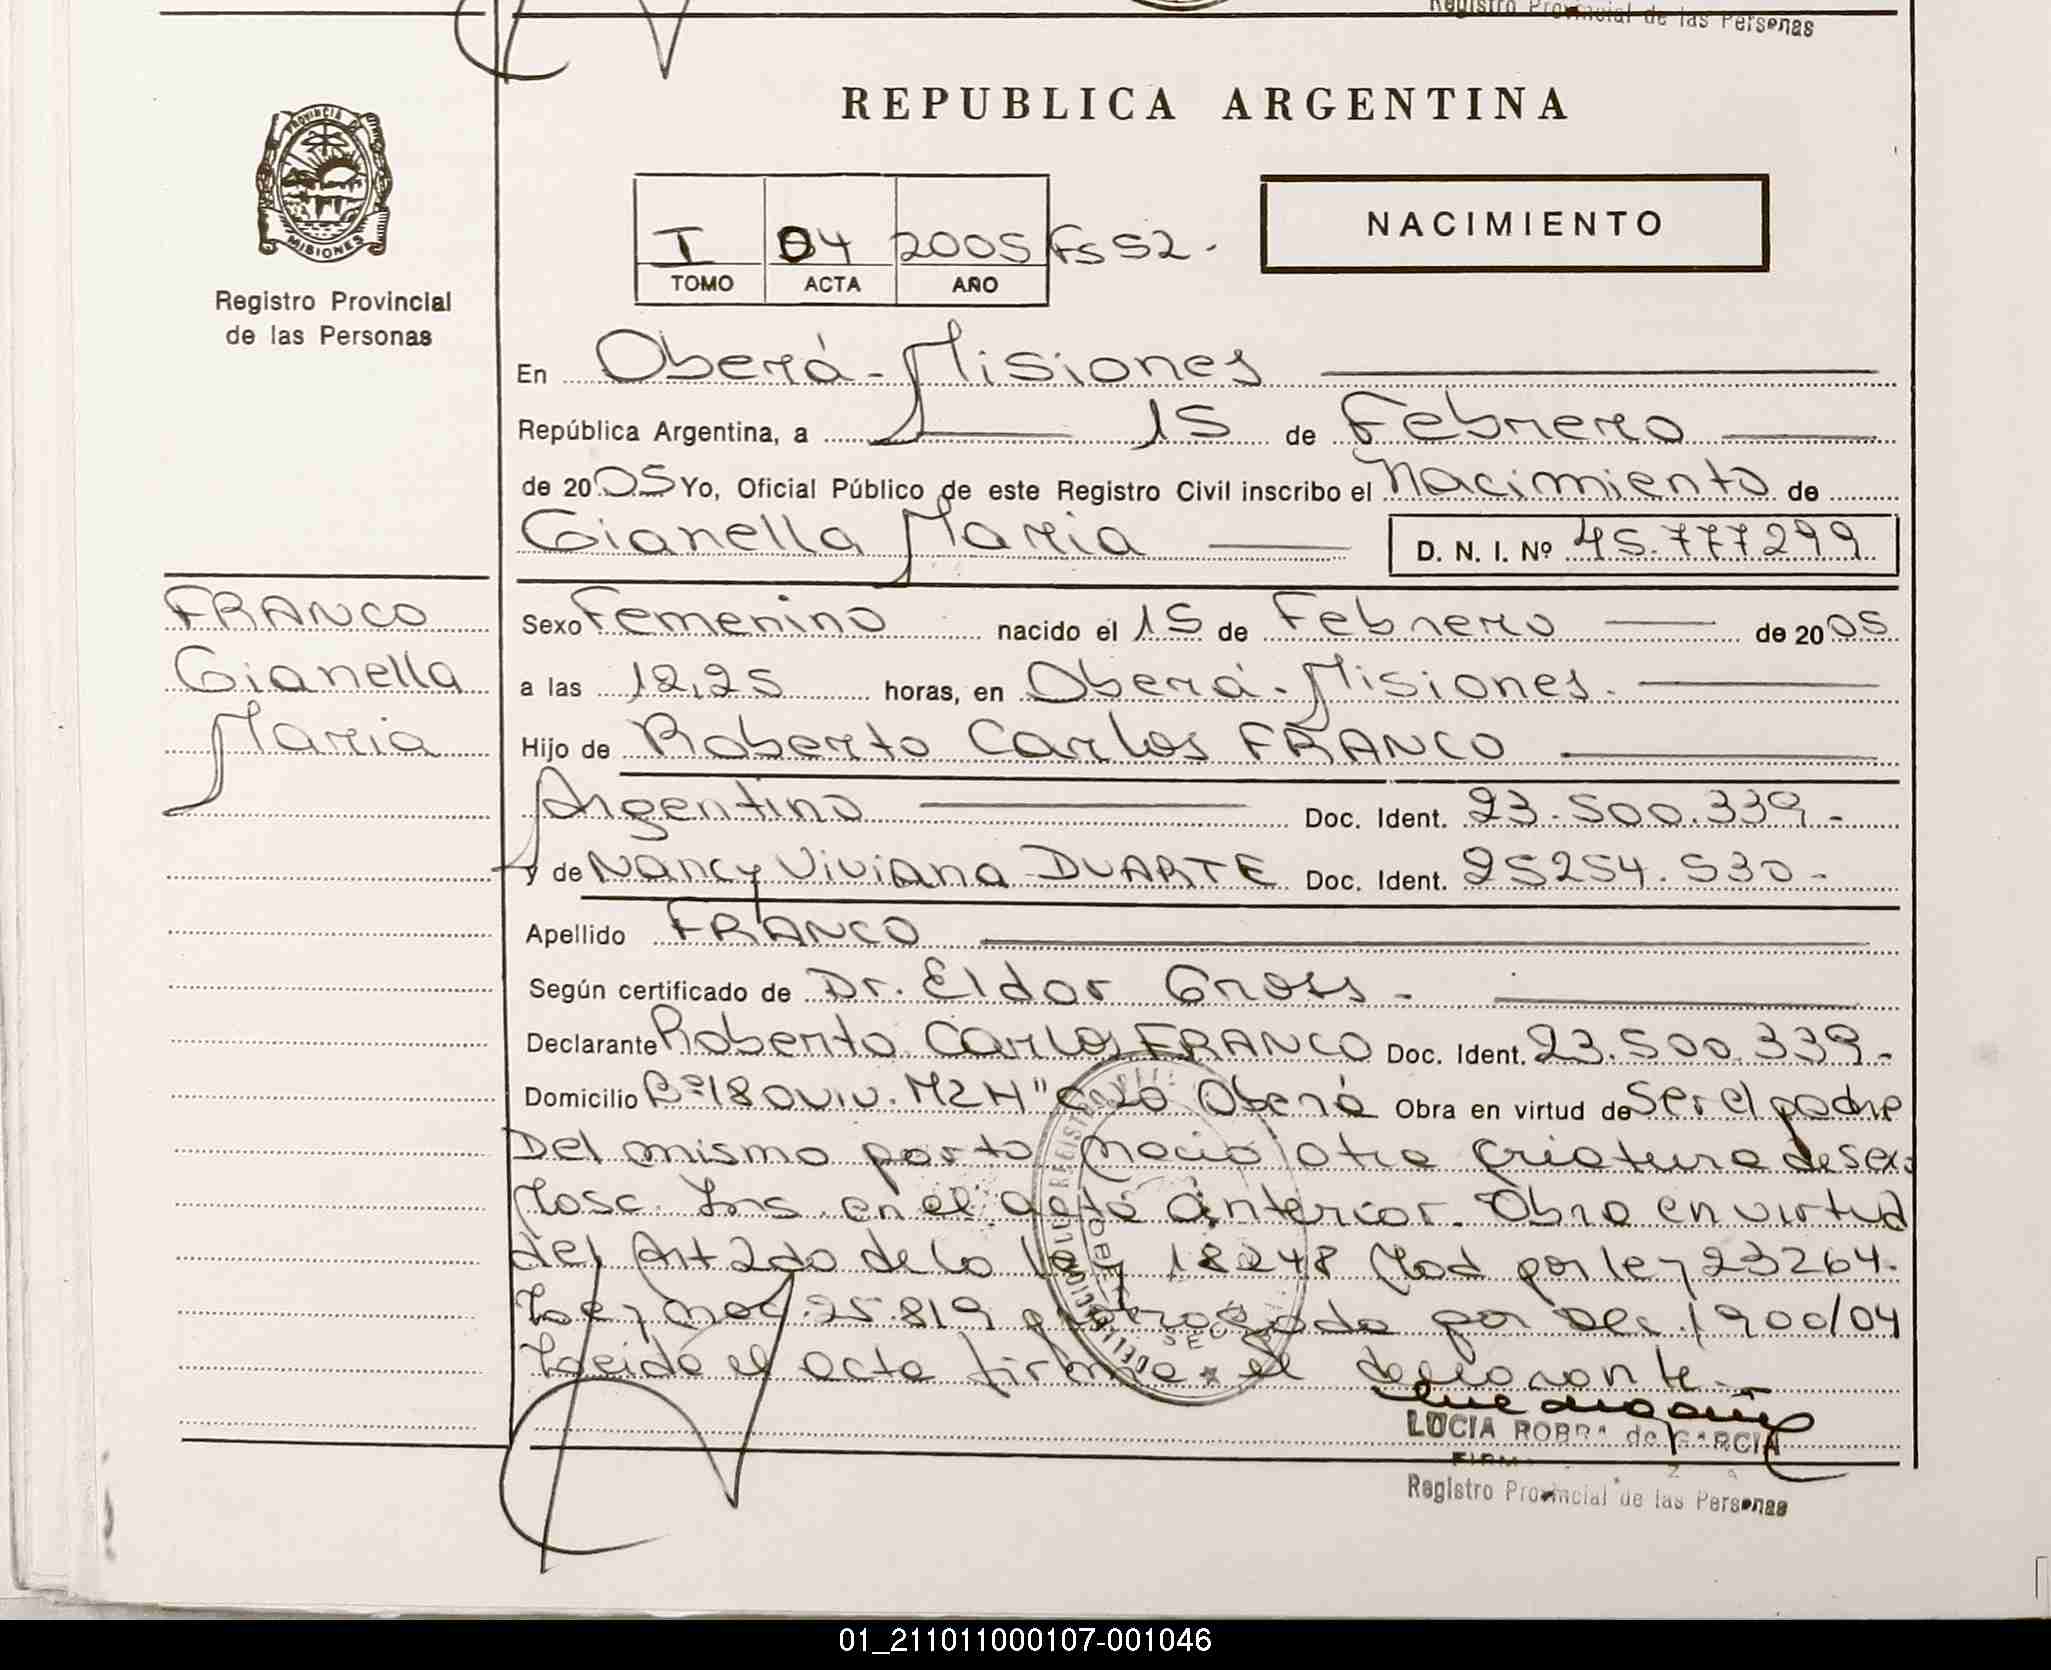 Registro Provincial de las Personas
REPUBLICA ARGENTINA
PROVINCIA DE
MISIONES
Registro Provincial
de las Personas
I 04 2005 Fs 52.
TOMO ACTA AÑO
NACIMIENTO
En Oberá - Misiones
República Argentina, a 15 de Febrero
de 2005 Yo, Oficial Público de este Registro Civil inscribo el Nacimiento de
Gianella Maria D. N. I. Nº 45.777299
FRANCO
Gianella
Maria
Sexo Femenino nacido el 15 de Febrero de 2005
a las 12,25 horas, en Oberá - Misiones.
Hijo de Roberto Carlos FRANCO
Argentino Doc. Ident. 23.500.339.-
y de Nancy Viviana DUARTE Doc. Ident. 25254.530.-
Apellido FRANCO
Según certificado de Dr. Eldor Gross -
Declarante Roberto Carlos FRANCO Doc. Ident. 23.500.339.-
Domicilio Bº 180 Viv. MZ H" C 20 Oberá Obra en virtud de Ser el padre
Del mismo parto nació otra criatura de sexo
Masc. Ins. en el acta anterior. Obra en virtud
del Art 2do de la ley 18248 Mod por ley 23264.
Ley Nac. 25.819 prorrogada por Dec. 1900/04
Leida el acta firma el declarante.
LUCIA ROBRA de GARCIA
Registro Provincial de las Personas
01_211011000107-001046